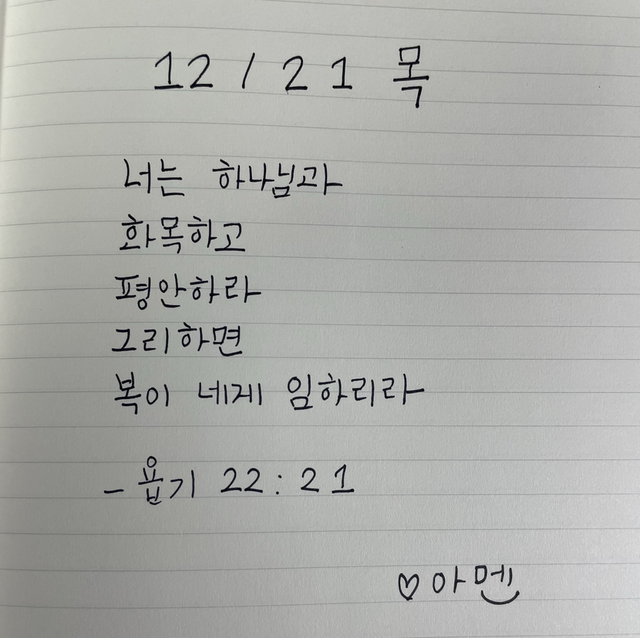 12 / 21 목
너는 하나님과
화목하고
평안하라
그리하면
복이 네게 임하리라
- 욥기 22 : 21
♡아멘